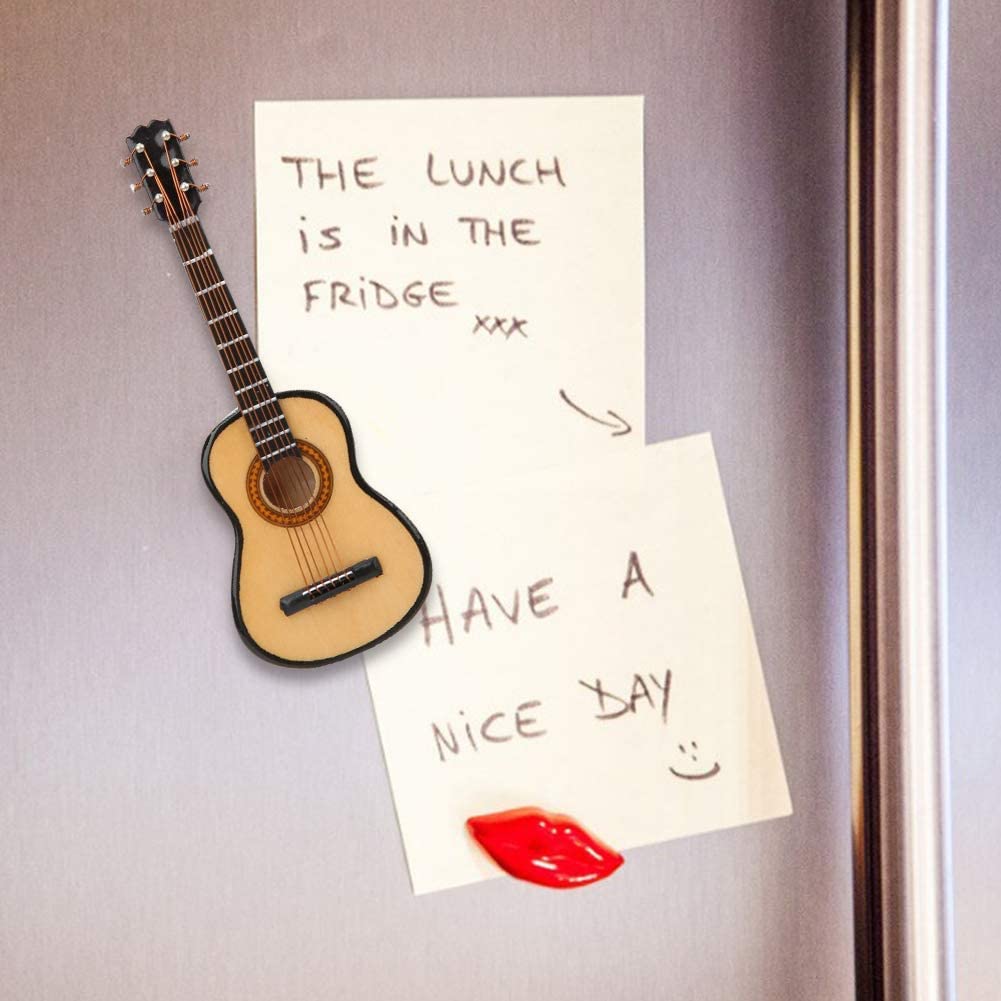 THE LUNCH
is iN THE
FRiDGE
xxx
HAVE A
NiCE DAY